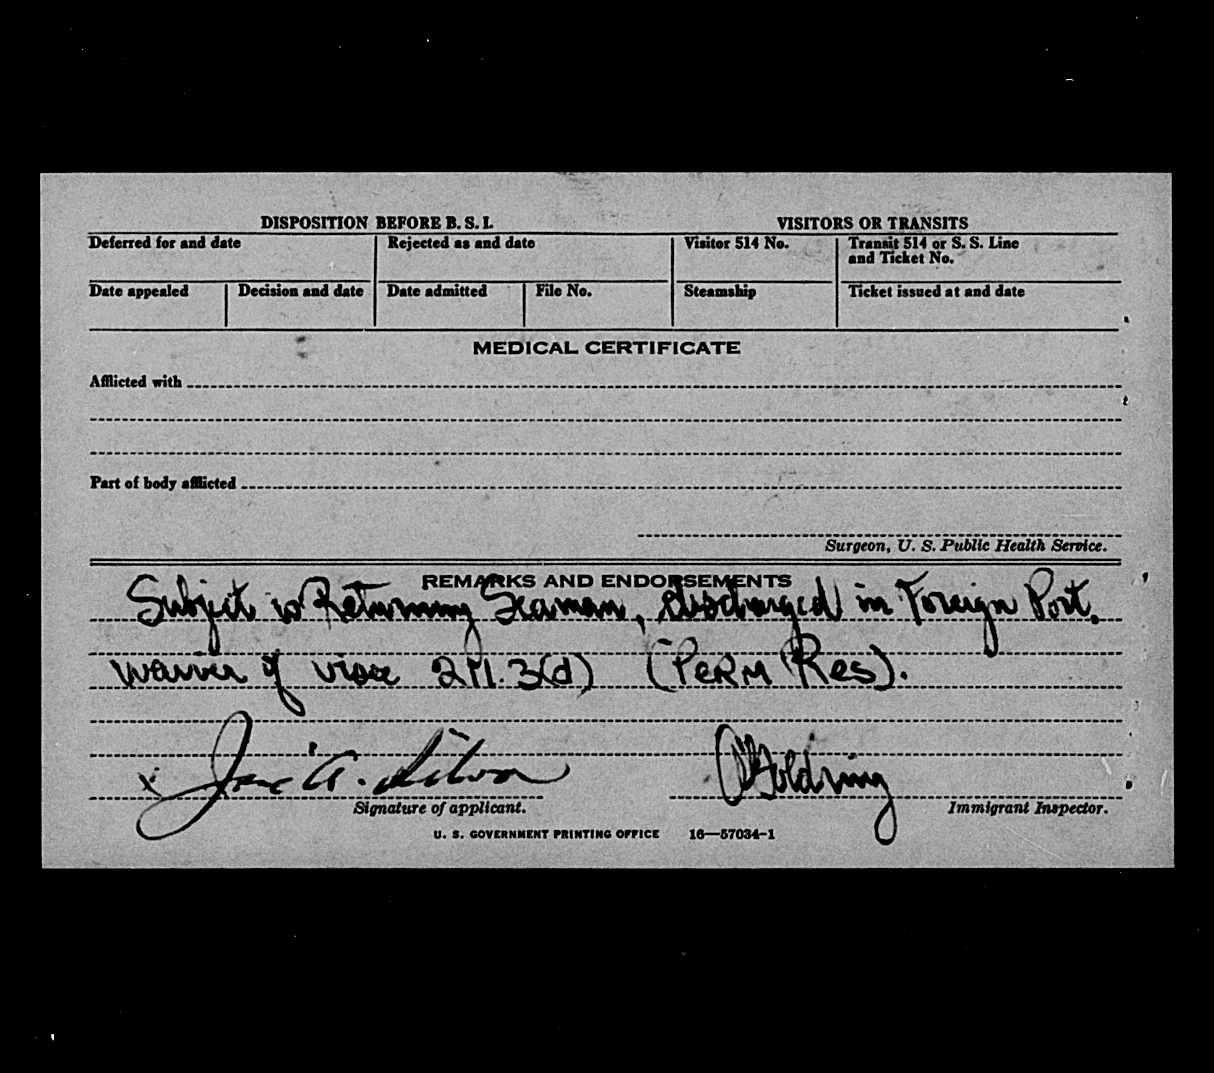 DISPOSITION BEFORE B. S. I.
VISITORS OR TRANSITS
Deferred for and date
Rejected as and date
Visitor 514 No.
Transit 514 or S. S. Line
and Ticket No.
Date appealed
Decision and date
Date admitted
File No.
Steamship
Ticket issued at and date
MEDICAL CERTIFICATE
Afflicted with
Part of body afflicted
Surgeon, U. S. Public Health Service.
REMARKS AND ENDORSEMENTS
Subject is Returning Seaman, discharged in Foreign Port,
waiver of visa 211.3(d) (PERM Res).
x José A. Silva
Goldring
Signature of applicant.
Immigrant Inspector.
U. S. GOVERNMENT PRINTING OFFICE 16—57034-1